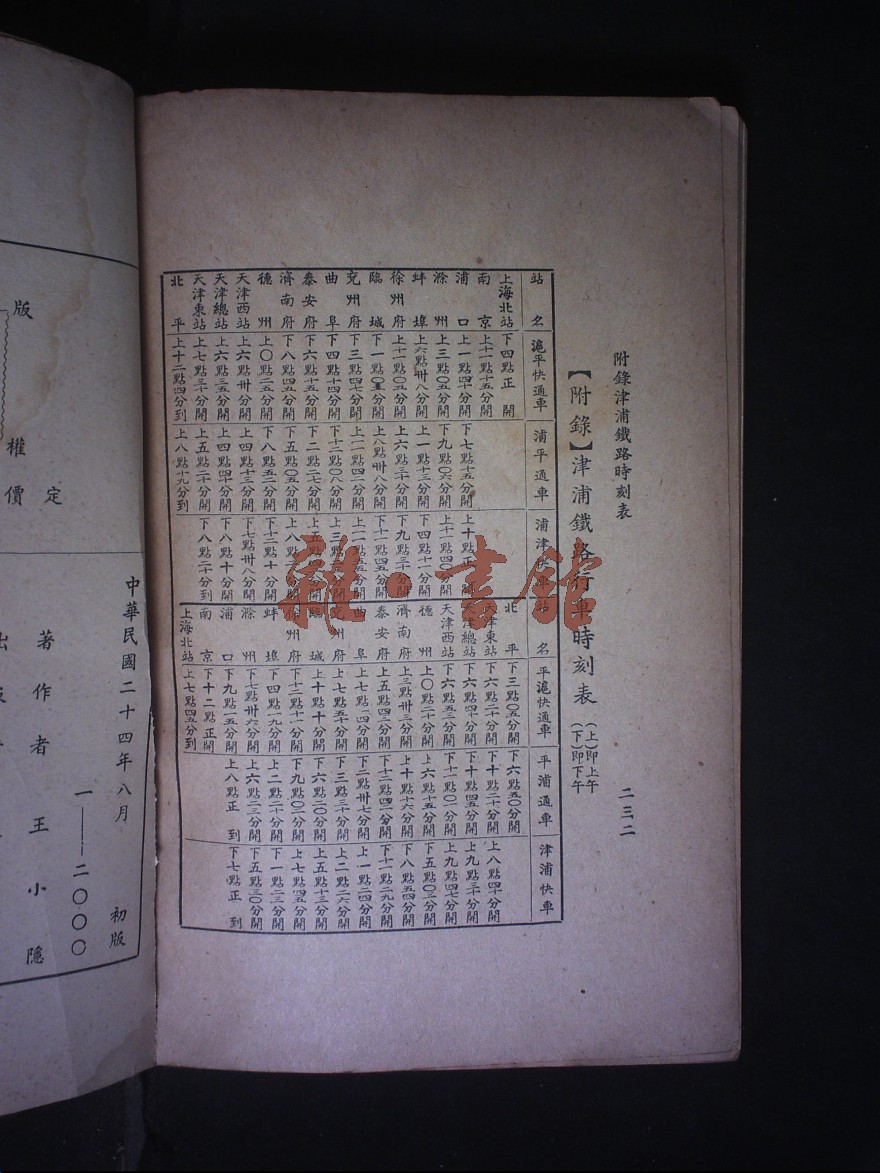 附錄津浦鐵路時刻表 二三二
【附錄】津浦鐵路行車時刻表 (上)即上午
(下)即下午
站名 滬平快通車 浦平通車 浦津快車 站名 平滬快通車 平浦通車 津浦快車
上海北站 下四點正開 北平 下三點〇五分開 下六點五〇分開
南京 上十一點十五分開 天津東站 下六點二十分開 下十點二十分開 上八點四十分開
浦口 上一點四十分開 下七點十五分開 上十點正開 天津總站 下六點四十分開 下十點四五分開 上九點三十分開
滁州 上三點〇五分開 下九點〇六分開 上十一點 分開 天津西站 下六點五三分開 下十一點〇一分開 上九點四七分開
蚌埠 上六點卅八分開 上一點十三分開 下四點十一分開 德州 上〇點二十分開 上六點十五分開 下五點〇三分開
徐州府 上十一點〇五分開 上六點三十分開 下九點三 分開 濟南府 上三點卅三分開 上十點十六分開 下八點五四分開
臨城 下一點 分開 上八點卅八分開 下十一點四五分開 泰安府 上五點四三分開 下十二點四一分開 下十一點二九分開
兗州府 下三點四七分開 上十一點四二分開 上二點 分開 曲阜 上七點一四分開 下二點卅七分開 上一點二四分開
曲阜 下四點十四分開 下十二點〇八分開 上三點 兗州府 上七點五十分開 下三點三十分開 上二點二六分開
泰安府 下六點十五分開 下二點二七分開 上五點 臨城 上十點十分開 下六點二〇分開 上五點十三分開
濟南府 下八點四五分開 下五點〇五分開 上八點 徐州府 下十二點十一分開 下九點〇二分開 上七點四五分開
德州 上〇點二五分開 下八點五二分開 下十二點十分開 蚌埠 下四點一九分開 上二點二十分開 下一點二三分開
天津西站 上六點卅分開 上四點十三分開 下七點卅八分開 滁州 下七點卅六分開 上六點二三分開 下五點三〇分開
天津總站 上六點三五分開 上四點四十分開 下八點十分開 浦口 下九點一五分開 上八點正到 下七點正到
天津東站 上七點三十分開 上五點二十分開 下八點二十分到 南京 下十二點正開
北平 上十二點四分到 上八點十九分到 上海北站 上七點四五分到
書館
中華民國二十四年八月 初版
一——二〇〇〇
定價
版權
著作者王小隱